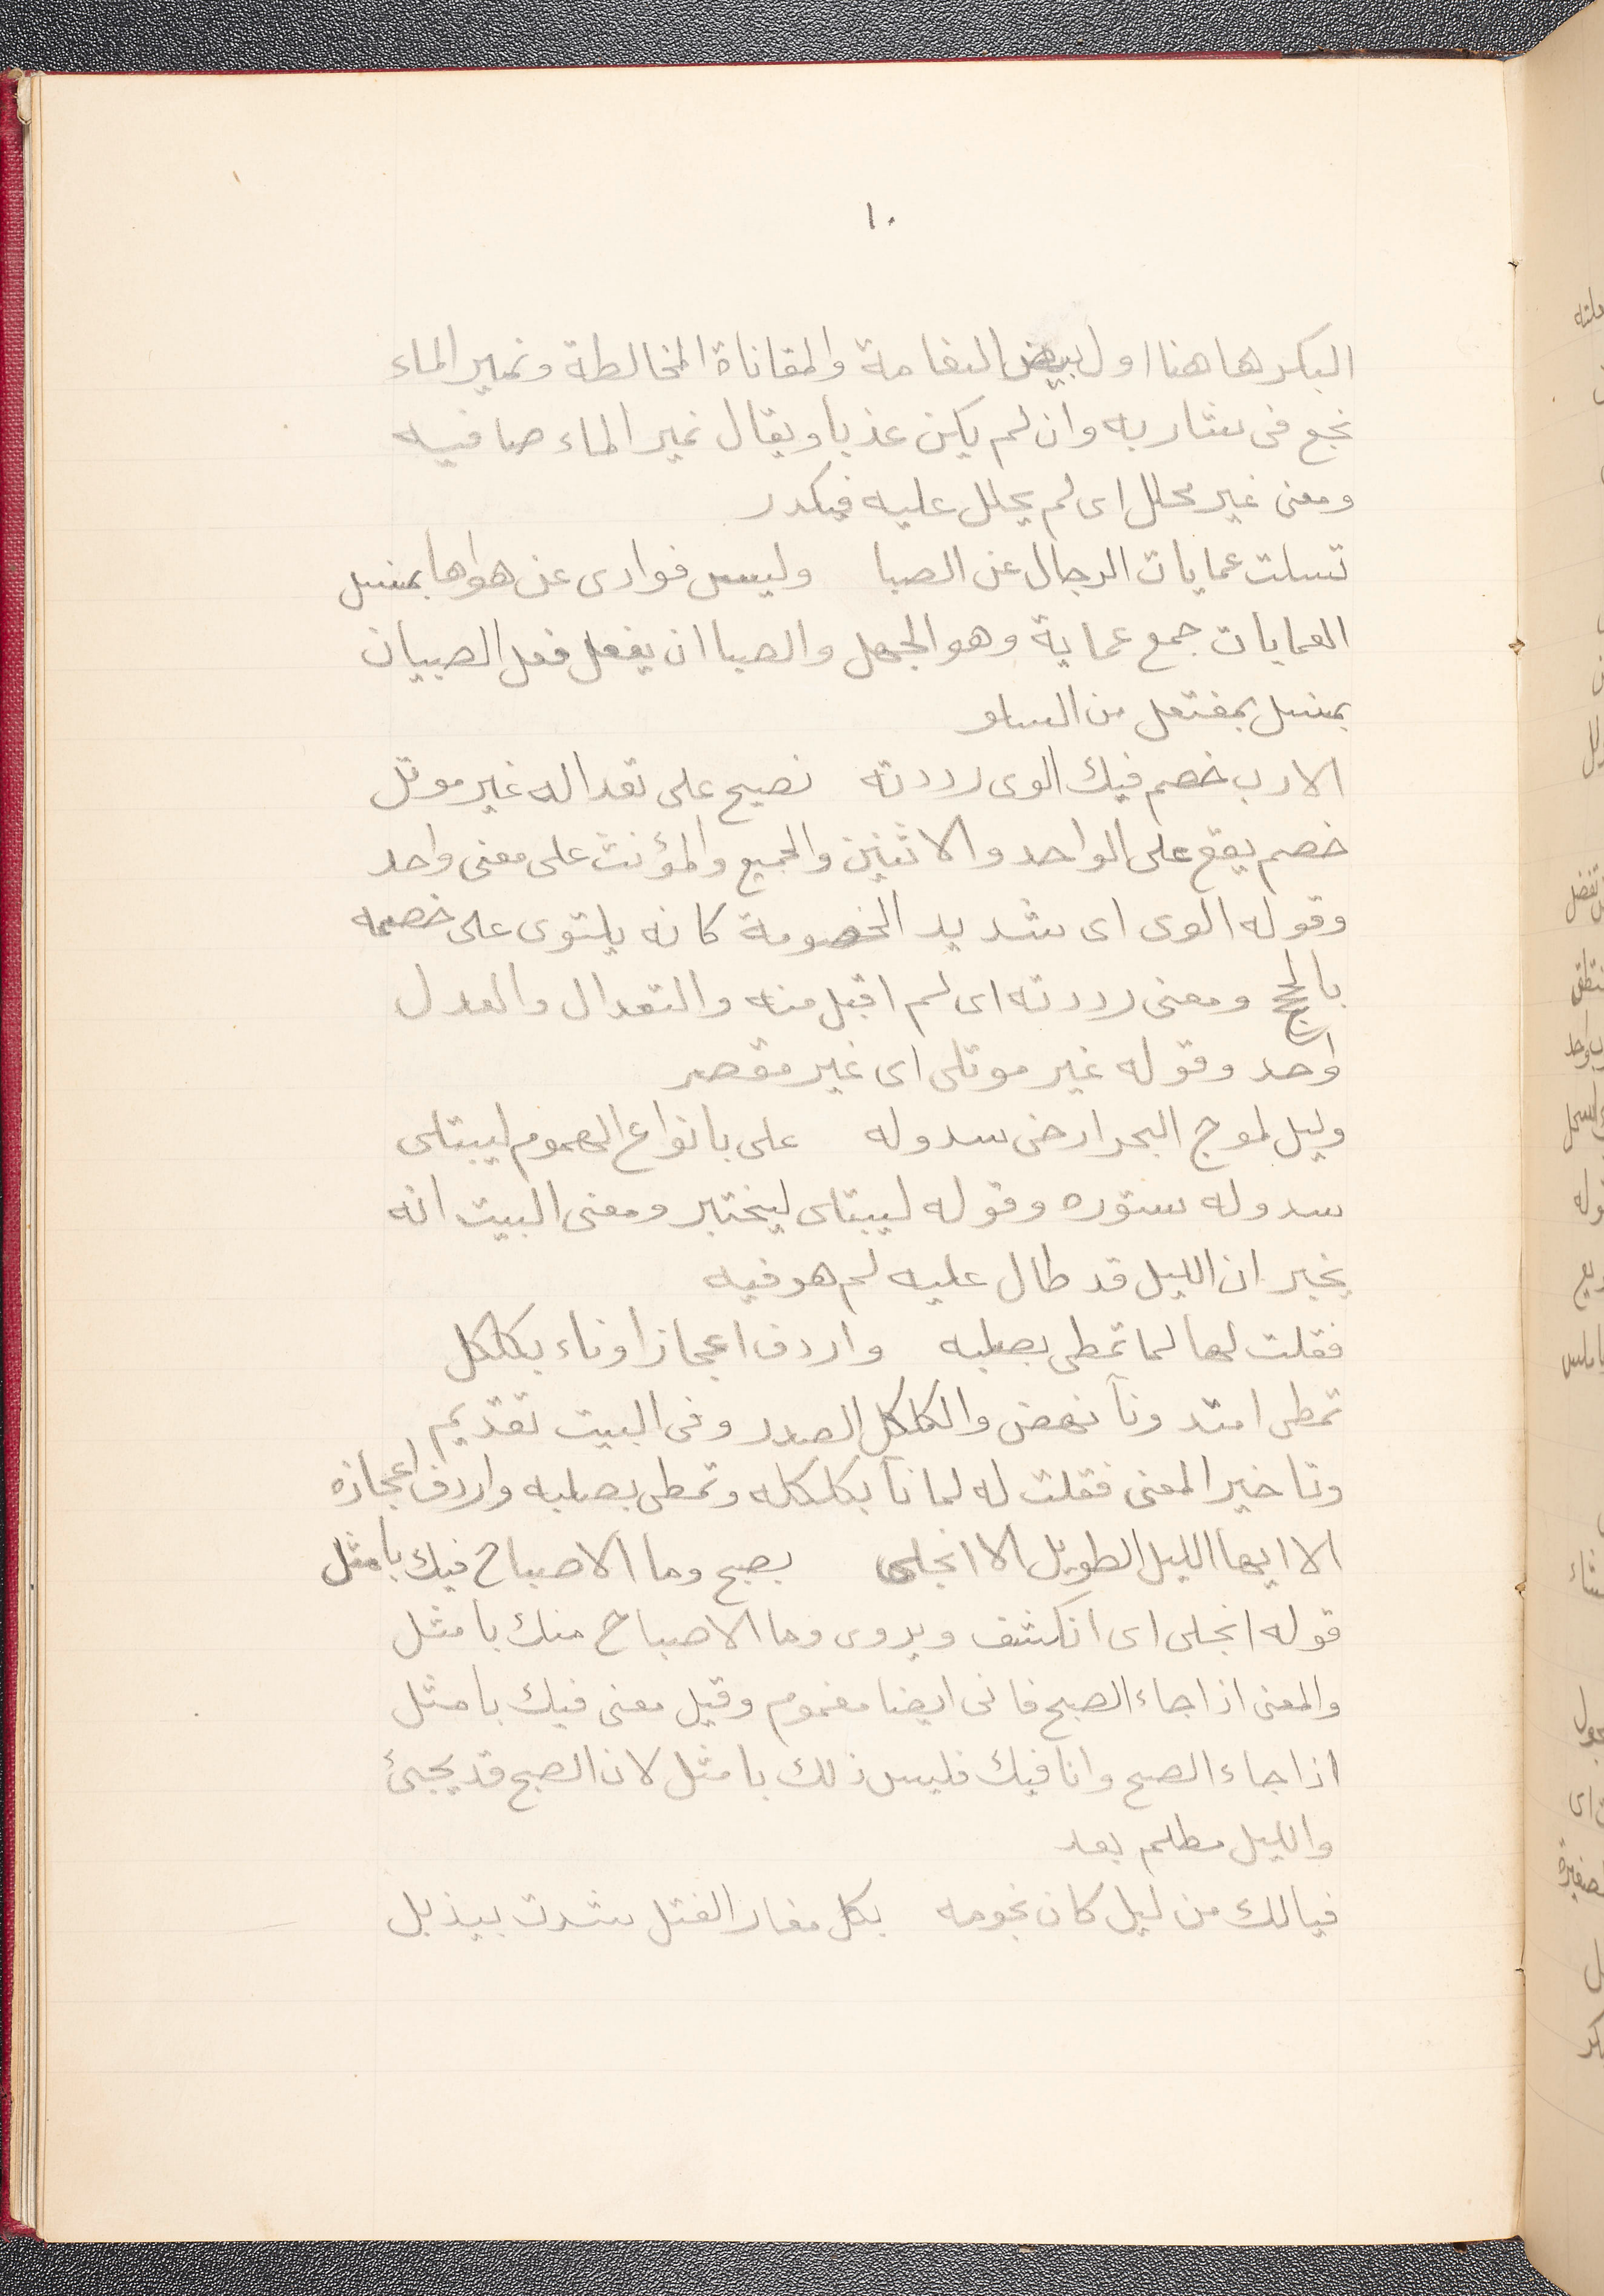 ١٠
البكر هاهنا اول بيض النعامة والمقاناة المخالطة ونمير الماء
نجع فى شاربه وان لم يكن عذبا ويقال نمير الماء صافيه
ومعنى غير محلل اى لم يحلل عليه فيكدر
تسلت عمايات الرجال عن الصبا وليس فوادى عن هواها بمنسل
العمايات جمع عماية وهو الجهل والصبا ان يفعل فعل الصبيان
بمنسل بمفتعل من السلو
الارب خصم فيك الوى رددته نصيح على تعداله غير موتل
خصم يقع على الواحد والاثنين والجميع والمؤنث على معنى واحد
وقوله الوى اى شديد الخصومة كانه يلتوى على خصمه
بالحجج ومعنى رددته اى لم اقبل منه والتعدال والعدل
واحد وقوله غير موتلى اى غير مقصر
وليل لموج البحر ارخى سدوله على بانواع الهموم ليبتلى
سدوله ستوره وقوله ليبتلى ليختبر ومعنى البيت انه
يخبر ان الليل قد طال عليه لم هو فيه
فقلت لها لما تمطى بصلبه واردف اعجازا وناء بكلكل
تمطى امتد ونآ نهض والكلكل الصدر وفى البيت تقديم
وتاخير المعنى فقلت له لما نآ بكلكله وتمطى بصلبه واردف اعجازه
الا ايها الليل الطويل الا انجلى بصبح وما الاصباح فيك بامثل
قوله انجلى اى انكشف ويروى وما الاصباح منك بامثل
والمعنى اذا جاء الصبح فانى ايضا مغموم وقيل معنى فيك بامثل
اذا جاء الصبح وانا فيك فليس ذلك بامثل لان الصبح قد يجىئ
والليل مظلم بعد
فيالك من ليل كان نجومه بكل مغار الفتل شدت بيذبل